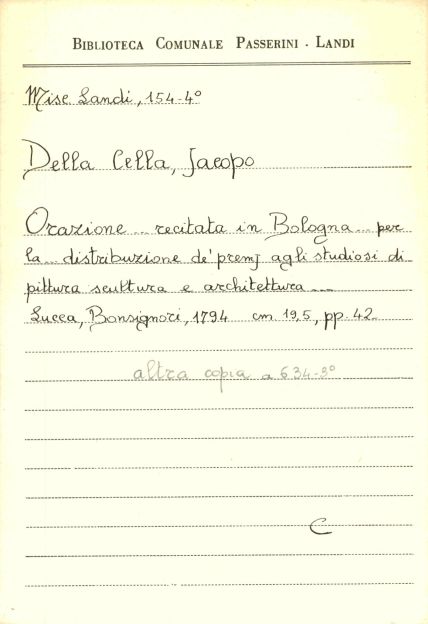 BIBLIOTECA COMUNALE PASSERINI - LANDI
Misc Landi, 154-4°
Della Cella, Jacopo
Orazione ... recitata in Bologna ... per
la ... distribuzione de' premj agli studiosi di
pittura scultura e architettura ...
Lucca, Bonsignori, 1794 cm 19,5, pp. 42
altra copia a 634-3°
C